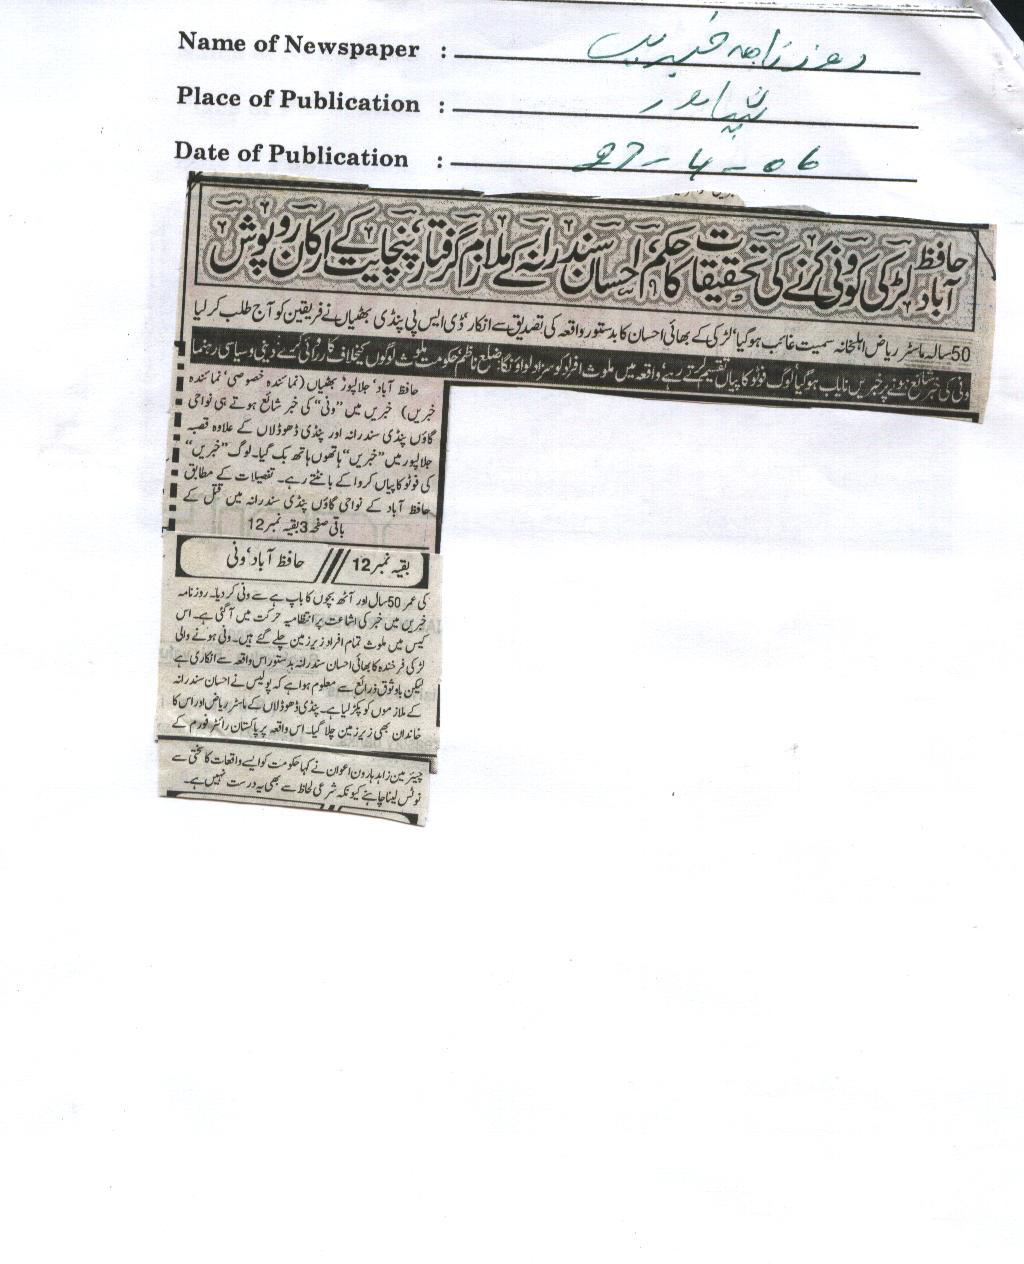 Name of Newspaper : روزنامہ خبریں
Place of Publication : پشاور
Date of Publication : 27-4-06
حافظ آباد، لڑکی کو ونی کرنے کی تحقیقات کا حکم، احسان سندرانہ کے ملازم گرفتار، پنچایت کے ارکان روپوش
50 سالہ ماسٹر ریاض اہلخانہ سمیت غائب ہوگیا، لڑکی کے بھائی احسان کا بدستور واقعہ کی تصدیق سے انکار، ڈی ایس پی پنڈی بھٹیاں نے فریقین کو آج طلب کر لیا
ونی کی خبر شائع ہونے پر خبریں نایاب ہوگیا، لوگ فوٹو کاپیاں تقسیم کرتے رہے، واقعہ میں ملوث افراد کو سزا دلواؤنگا: ضلع ناظم، حکومت ملوث لوگوں کیخلاف کارروائی کرے: دینی و سیاسی رہنما
حافظ آباد، جلالپور بھٹیاں (نمائندہ خصوصی، نمائندہ
خبریں) خبریں میں ”ونی“ کی خبر شائع ہوتے ہی نواحی
گاؤں پنڈی سندرانہ اور پنڈی ڈھوڈلاں کے علاوہ قصبہ
جلالپور میں ”خبریں“ ہاتھوں ہاتھ بک گیا۔ لوگ ”خبریں“
کی فوٹو کاپیاں کروا کے بانٹتے رہے۔ تفصیلات کے مطابق
حافظ آباد کے نواحی گاؤں پنڈی سندرانہ میں قتل کے
باقی صفحہ 3 بقیہ نمبر 12
بقیہ نمبر 12 حافظ آباد، ونی
کی عمر 50 سال اور آٹھ بچوں کا باپ ہے سے ونی کر دیا۔ روزنامہ
خبریں میں خبر کی اشاعت پر انتظامیہ حرکت میں آ گئی ہے۔ اس
کیس میں ملوث تمام افراد زیر زمین چلے گئے ہیں۔ ونی ہونے والی
لڑکی فرخندہ کا بھائی احسان سندرانہ بدستور اس واقعہ سے انکاری ہے
لیکن باوثوق ذرائع سے معلوم ہوا ہے کہ پولیس نے احسان سندرانہ
کے ملازموں کو پکڑ لیا ہے۔ پنڈی ڈھوڈلاں کے ماسٹر ریاض اور اس کا
خاندان بھی زیر زمین چلا گیا۔ اس واقعہ پر پاکستان رائٹر فورم کے
چیئرمین زاہد ہارون اعوان نے کہا حکومت کو ایسے واقعات کا سختی سے
نوٹس لینا چاہئے کیونکہ شرعی لحاظ سے بھی یہ درست نہیں ہے۔